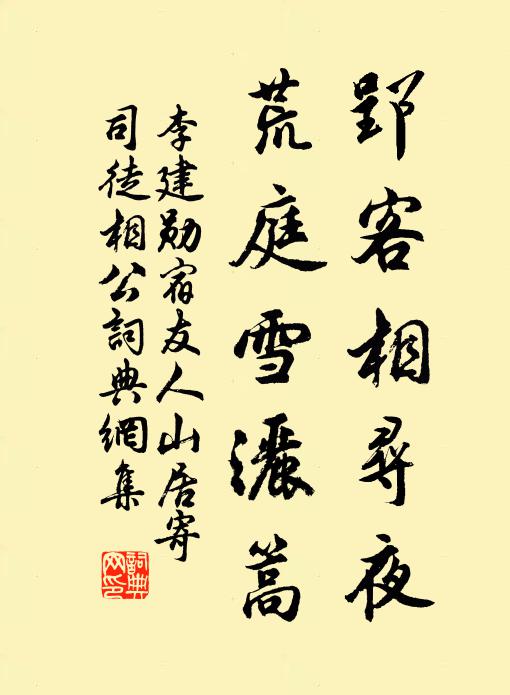 郢客相尋夜
荒庭雪灑蒿
李建勛宿友人山居寄
司徒相公詞典網集
詞典網印